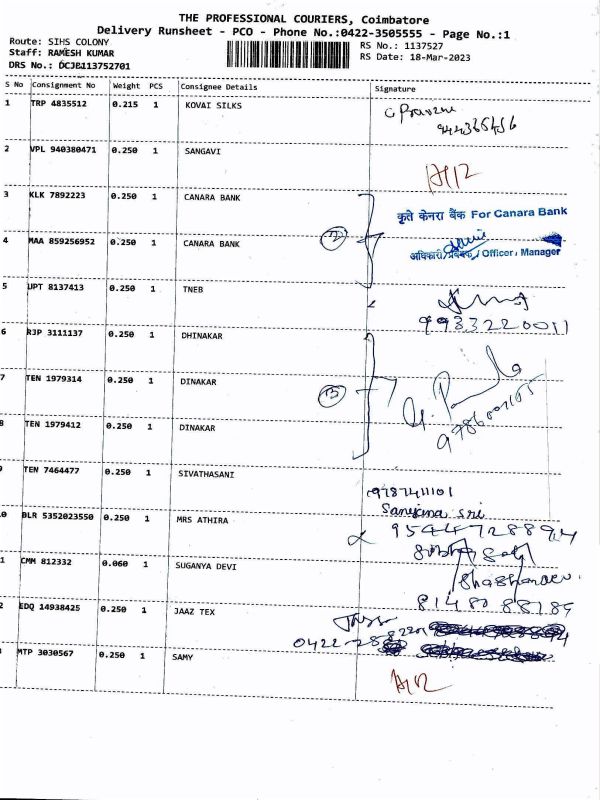 THE PROFESSIONAL COURIERS, Coimbatore
Delivery Runsheet - PCO - Phone No.:0422-3505555 - Page No.:1
Route: SIHS COLONY
RS No.: 1137527
Staff: RAMESH KUMAR
RS Date: 18-Mar-2023
DRS No.: DCJB113752701
S No Consignment No Weight PCS Consignee Details Signature
1 TRP 4835512 0.215 1 KOVAI SILKS
2 VPL 940380471 0.250 1 SANGAVI
3 KLK 7892223 0.250 1 CANARA BANK
कृते केनरा बैंक For Canara Bank
4 MAA 859256952 0.250 1 CANARA BANK
अधिकारी/प्रबंधक / Officer / Manager
5 UPT 8137413 0.250 1 TNEB
9933220011
6 RJP 3111137 0.250 1 DHINAKAR
7 TEN 1979314 0.250 1 DINAKAR
8 TEN 1979412 0.250 1 DINAKAR
9 TEN 7464477 0.250 1 SIVATHASANI
9787411101
0 BLR 5352023550 0.250 1 MRS ATHIRA
1 CMM 812332 0.060 1 SUGANYA DEVI
2 EDQ 14938425 0.250 1 JAAZ TEX
MTP 3030567 0.250 1 SAMY